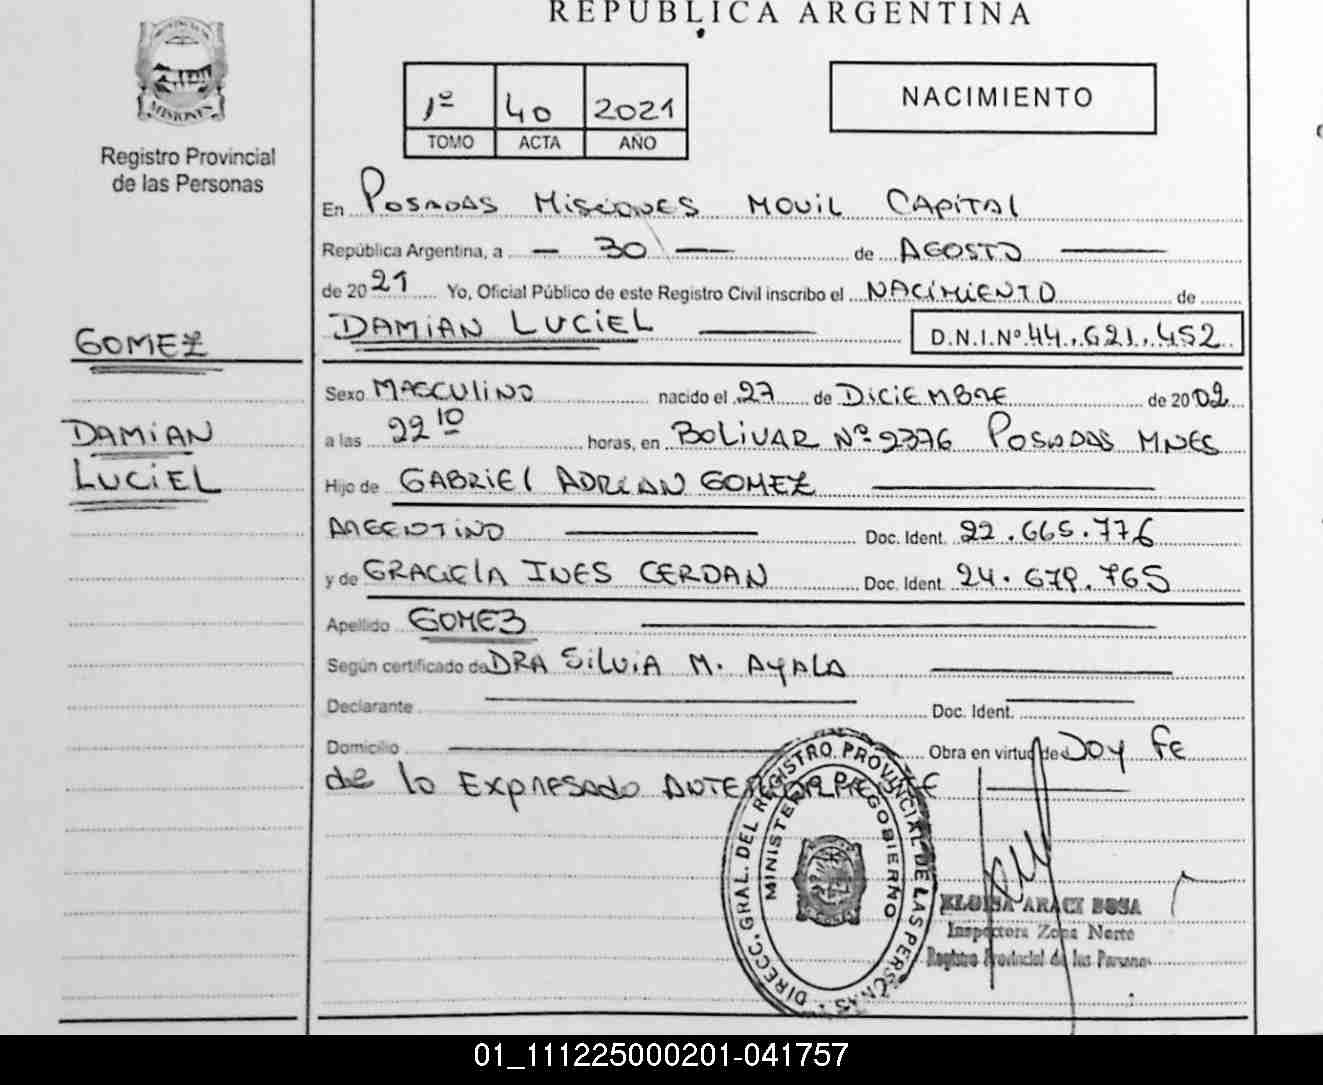 REPUBLICA ARGENTINA
MISIONES
Registro Provincial
de las Personas
1º 40 2021
TOMO ACTA AÑO
NACIMIENTO
En POSADAS MISIONES MOVIL CAPITAL
República Argentina, a — 30 — de AGOSTO
de 2021 Yo, Oficial Público de este Registro Civil inscribo el NACIMIENTO de
DAMIAN LUCIEL D.N.I.Nº 44.621.452
GOMEZ
DAMIAN
LUCIEL
Sexo MASCULINO nacido el 27 de DICIEMBRE de 2002
a las 22 10 horas, en BOLIVAR Nº 2376 POSADAS MNES
Hijo de GABRIEL ADRIAN GOMEZ
ARGENTINO Doc. Ident. 22.665.776
y de GRACIELA INES CERDAN Doc. Ident. 24.679.765
Apellido GOMEZ
Según certificado de DRA SILVIA M. AYALA
Declarante Doc. Ident.
Domicilio Obra en virtud de DOY FE
de lo Expresado ANTERIORMENTE
DIRECC. GRAL. DEL REGISTRO PROVINCIAL DE LAS PERSONAS
MINISTERIO DE GOBIERNO
ELOISA ARACI SOSA
Inspectora Zona Norte
Registro Provincial de las Personas
01_111225000201-041757